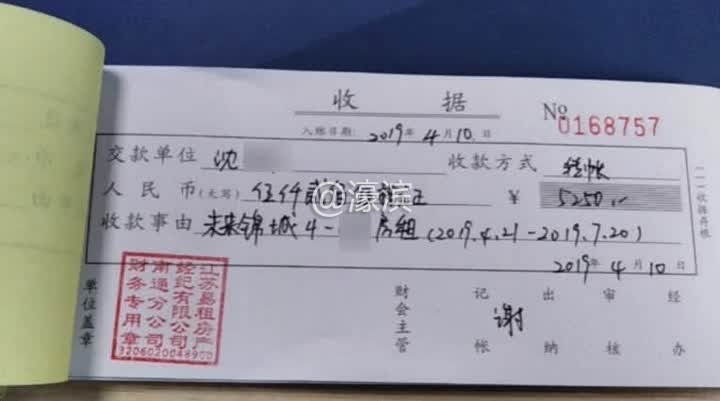 收 据
No 0168757
入账日期: 2019年 4月 10日
交款单位 沈 收款方式 转帐
人民币(大写) 伍仟贰佰 ¥ 5250.-
收款事由 未来锦城4- 房租(2019.4.21-2019.7.20)
2019年 4月 10日
江苏易租房产
经纪有限公司
南通分公司
财务专用章
3206020048900
单位盖章 财会主管 记帐 出纳 谢 审核 经办
@濠滨